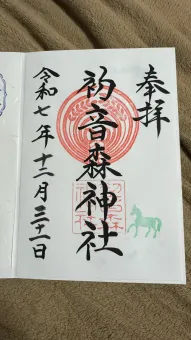 奉拝
初音森神社
令和七年十二月三十一日